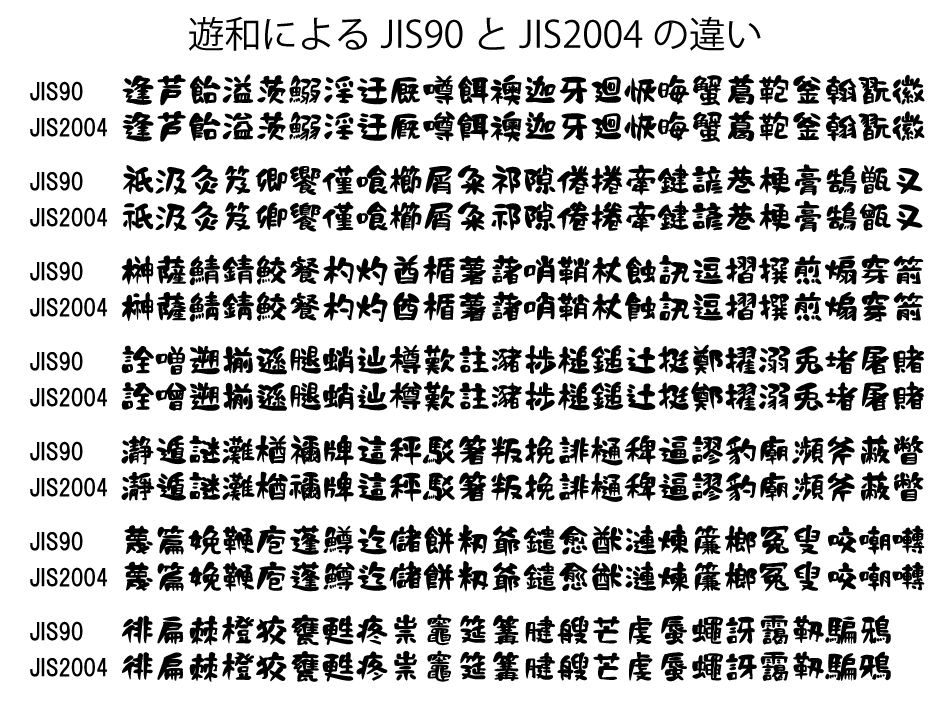 遊和による JIS90 と JIS2004 の違い
JIS90 逢芦飴溢茨鰯淫迂厩噂餌襖迦牙廻恢晦蟹葛鞄釜翰翫徽
JIS2004 逢芦飴溢茨鰯淫迂厩噂餌襖迦牙廻恢晦蟹葛鞄釜翰翫徽
JIS90 祇汲灸笈卿饗僅喰櫛屑粂祁隙倦捲牽鍵諺巷梗膏鵠甑叉
JIS2004 祇汲灸笈卿饗僅喰櫛屑粂祁隙倦捲牽鍵諺巷梗膏鵠甑叉
JIS90 榊薩鯖錆鮫餐杓灼酋楯薯藷哨鞘杖蝕訊逗摺撰煎煽穿箭
JIS2004 榊薩鯖錆鮫餐杓灼酋楯薯藷哨鞘杖蝕訊逗摺撰煎煽穿箭
JIS90 詮噌遡揃遜腿蛸辿樽歎註瀦捗槌鎚辻挺鄭擢溺兎堵屠賭
JIS2004 詮噌遡揃遜腿蛸辿樽歎註瀦捗槌鎚辻挺鄭擢溺兎堵屠賭
JIS90 瀞遁謎灘楢禰牌這秤駁箸叛挽誹樋稗逼謬豹廟瀕斧蔽瞥
JIS2004 瀞遁謎灘楢禰牌這秤駁箸叛挽誹樋稗逼謬豹廟瀕斧蔽瞥
JIS90 蔑篇娩鞭庖蓬鱒迄儲餅籾爺鑓愈猷漣煉簾榔冤叟咬嘲囀
JIS2004 蔑篇娩鞭庖蓬鱒迄儲餅籾爺鑓愈猷漣煉簾榔冤叟咬嘲囀
JIS90 徘扁棘橙狡甕甦疼祟竈筵篝腱艘芒虔蜃蠅訝靄靱騙鴉
JIS2004 徘扁棘橙狡甕甦疼祟竈筵篝腱艘芒虔蜃蠅訝靄靱騙鴉